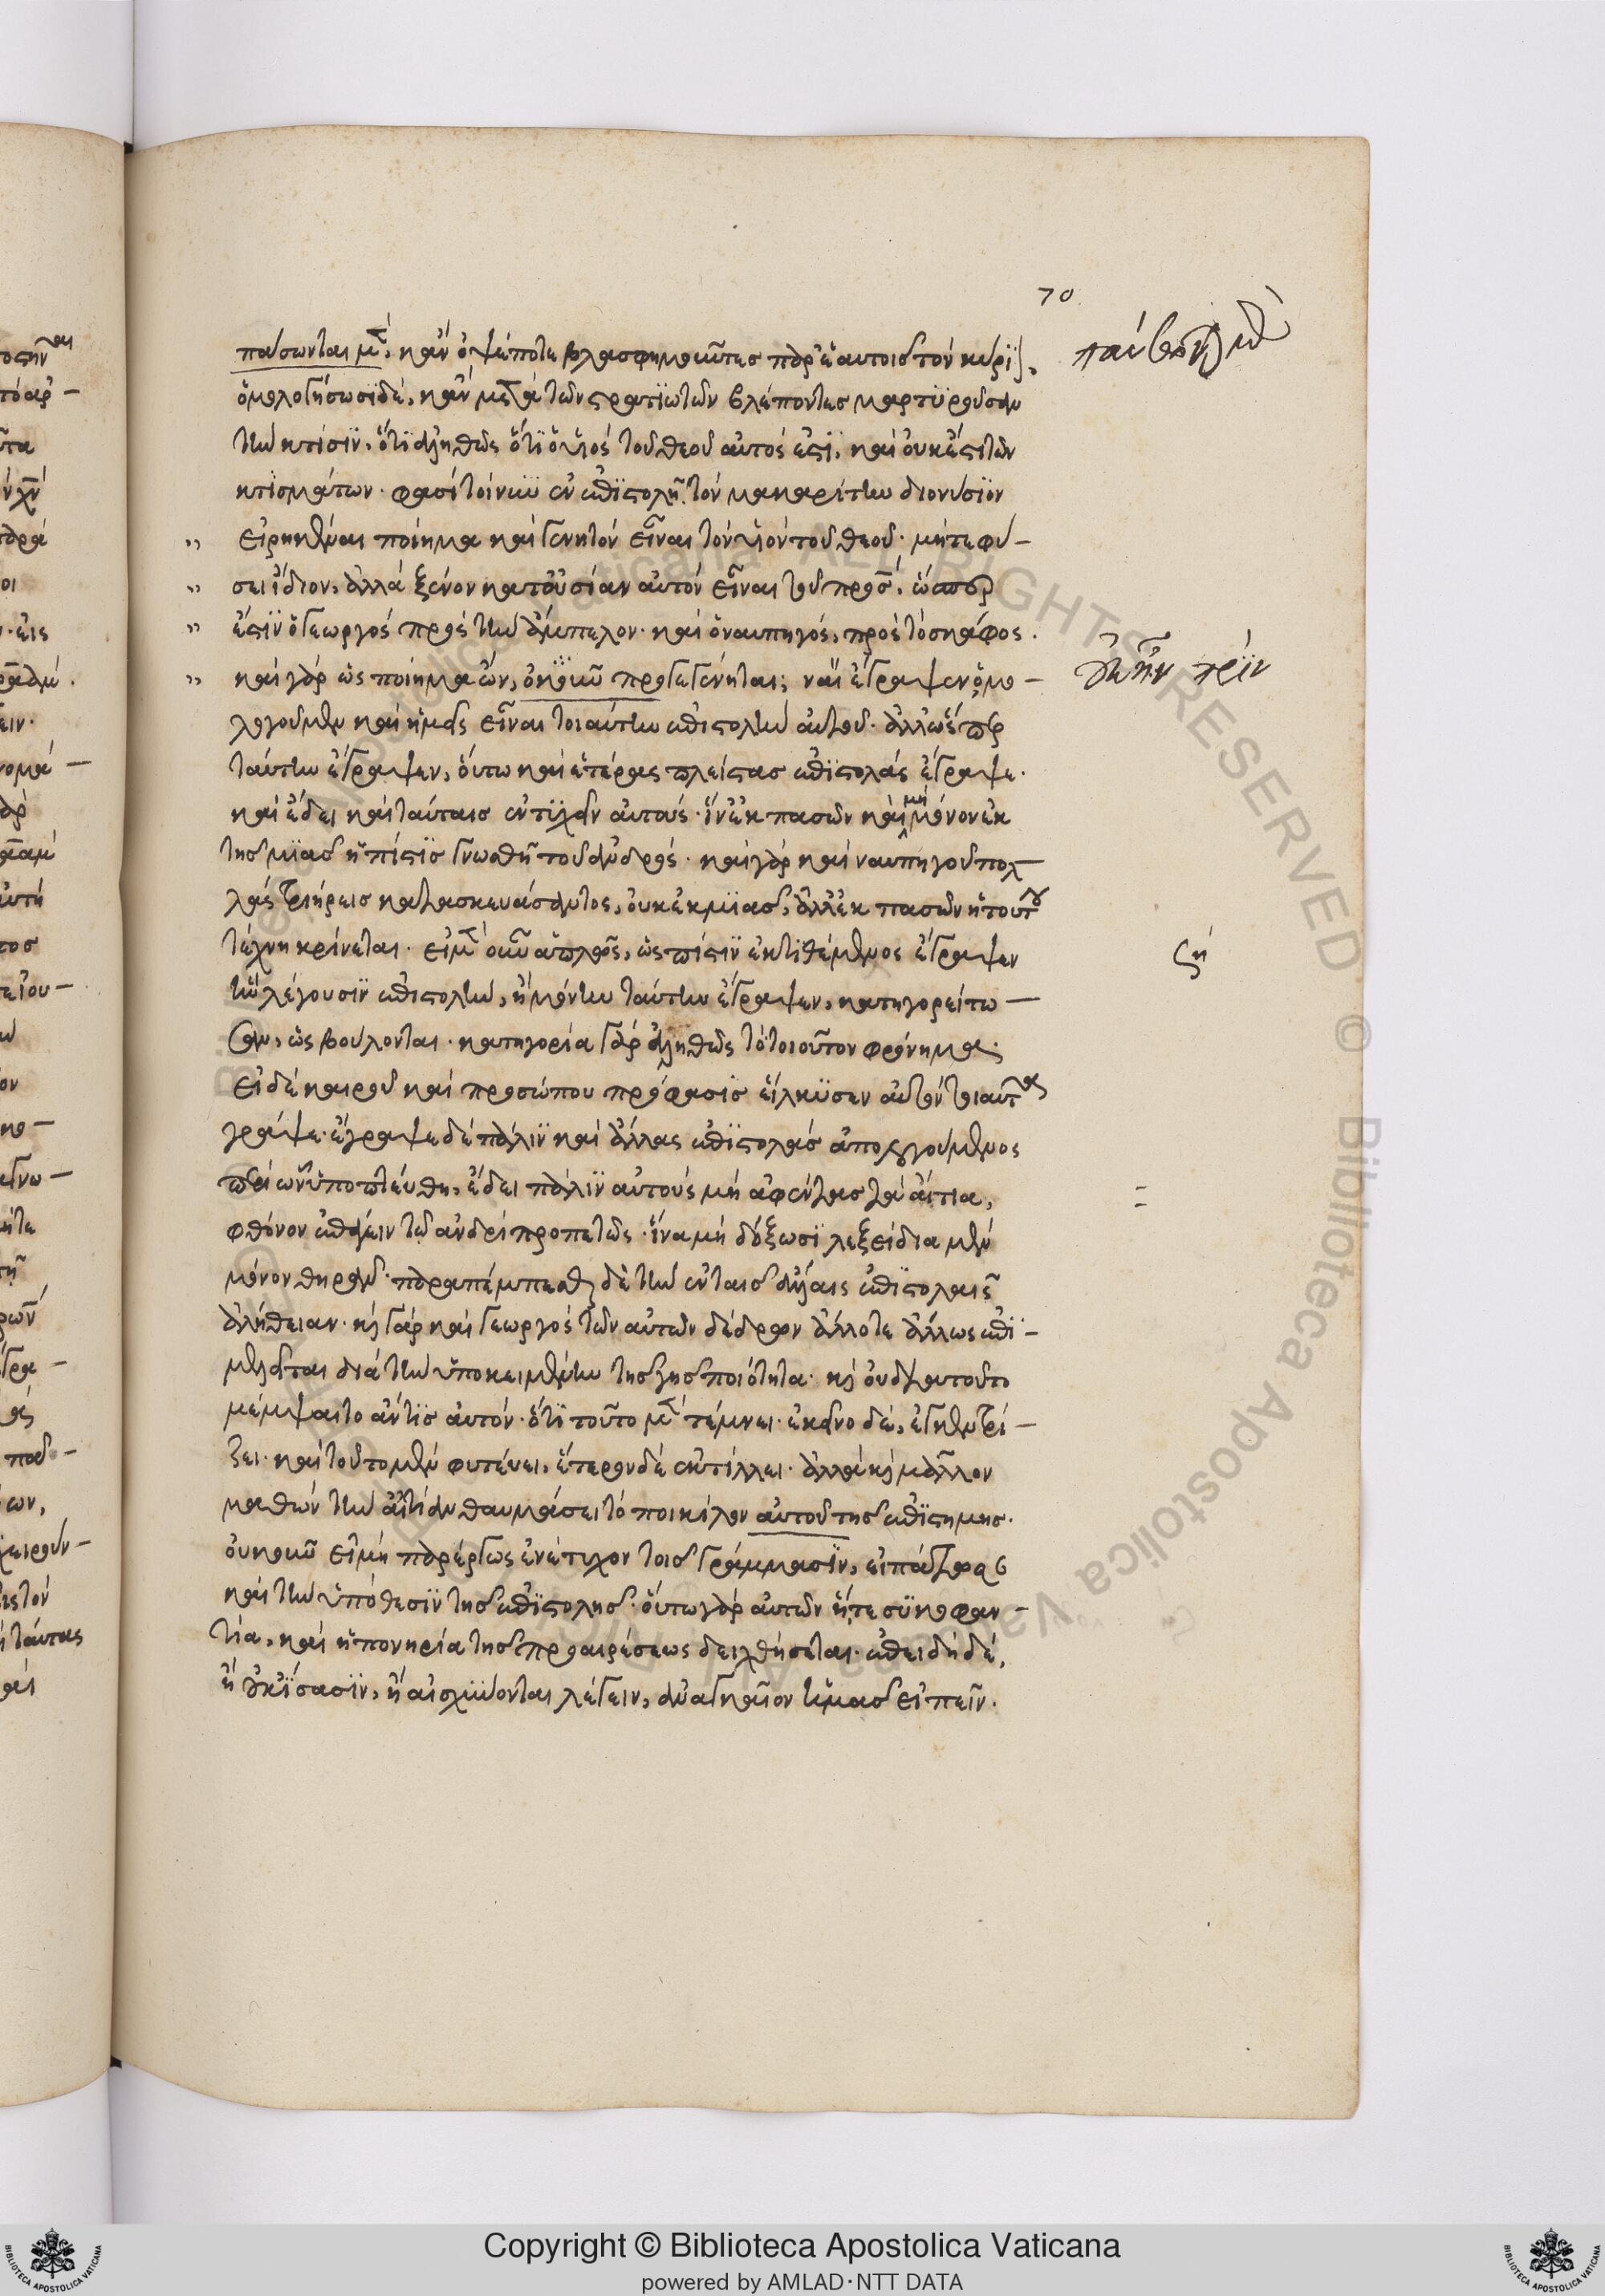 70
παύσωνται μὲν, κἂν ὀψέποτε βλασφημοῦντες παρ' ἑαυτοῖς τὸν κύριον,
ὁμολογήσωσι δὲ, κἂν μετὰ τῶν στρατιωτῶν βλέποντες μαρτυροῦσαν
τὴν κτίσιν, ὅτι ἀληθῶς ὅτι ὁ υἱὸς τοῦ θεοῦ αὐτός ἐστι, καὶ οὐκ ἔστι τῶν
κτισμάτων. φασὶ τοίνυν ἐν ἐπιστολῇ τὸν μακαρίτην διονύσιον
εἰρηκέναι ποίημα καὶ γενητὸν εἶναι τὸν υἱὸν τοῦ θεοῦ. μήτε φύ–
σει ἴδιον, ἀλλὰ ξένον κατ' οὐσίαν αὐτὸν εἶναι τοῦ πατρός, ὥσπερ
ἐστὶν ὁ γεωργὸς πρὸς τὴν ἄμπελον. καὶ ὁ ναυπηγὸς, πρὸς τὸ σκάφος.
καὶ γὰρ ὡς ποίημα ὢν, οὐκοῦν προγεγένηται; ναὶ ἔγραψεν ὁμο–
λογοῦμεν καὶ ἡμεῖς εἶναι τοιαύτην ἐπιστολὴν αὐτοῦ. ἀλλ' ὥσπερ
ταύτην ἔγραψεν, οὕτω καὶ ἑτέρας πλείστας ἐπιστολὰς ἔγραψε.
καὶ ἔδει καὶ ταύταις ἐντυχεῖν αὐτούς. ἵν' ἐκ πασῶν καὶ μὴ μόνον ἐκ
τῆς μιᾶς ἡ πίστις γνωσθῇ τοῦ ἀνδρός. καὶ γὰρ καὶ ναυπηγοῦ πολ–
λὰς τριήρεις κατασκευάσαντος, οὐκ ἐκ μιᾶς, ἀλλ' ἐκ πασῶν ἡ τούτου
τέχνη κρίνεται. εἰ μὲν οὖν ἁπλῶς, ὡς πίστιν ἐκτιθέμενος ἔγραψεν
ἣν λέγουσιν ἐπιστολὴν, ἢ μόνην ταύτην ἔγραψεν, κατηγορείτω–
σαν, ὡς βούλονται. κατηγορία γὰρ ἀληθῶς τὸ τοιοῦτον φρόνημα.
εἰ δὲ καιροῦ καὶ προσώπου πρόφασις εἵλκυσεν αὐτὸν τοιαῦτα
γράψε. ἔγραψε δὲ πάλιν καὶ ἄλλας ἐπιστολὰς ἀπολογούμενος
περὶ ὧν ὑπωπτεύθη, ἔδει πάλιν αὐτοὺς μὴ ἀφέντας τὰ αἴτια,
φθόνον ἐπάγειν τῷ ἀνδρὶ προπετῶς. ἵνα μὴ δόξωσι λεξείδια μὲν
μόνον θηρᾶν. παραπέμπεσθαι δὲ τὴν ἐν ταῖς ἄλλαις ἐπιστολαῖς
ἀλήθειαν. καὶ γὰρ καὶ γεωργὸς τῶν αὐτῶν δένδρων ἄλλοτε ἄλλως ἐπι–
μελεῖται διὰ τὴν ὑποκειμένην τῆς γῆς ποιότητα. καὶ οὐ διὰ τοῦτο
μέμψαιτο ἄν τις αὐτόν. ὅτι τοῦτο μὲν τέμνει. ἐκεῖνο δὲ, ἐγκεντρί–
ζει. καὶ τοῦτο μὲν φυτεύει, ἕτερον δὲ ἐκτίλλει. ἀλλὰ καὶ μᾶλλον
μαθὼν τὴν αἰτίαν θαυμάσει τὸ ποικίλον αὐτοῦ τῆς ἐπιστήμης.
οὐκοῦν εἰ μὴ παρέργως ἐνέτυχον τοῖς γράμμασιν, εἰπάτωσαν
καὶ τὴν ὑπόθεσιν τῆς ἐπιστολῆς. οὕτω γὰρ αὐτῶν ἥ τε συκοφαν–
τία, καὶ ἡ πονηρία τῆς προαιρέσεως δειχθήσεται. ἐπειδὴ δὲ,
ἢ οὐκ ἴσασιν, ἢ αἰσχύνονται λέγειν, ἀναγκαῖον ἡμᾶς εἰπεῖν.